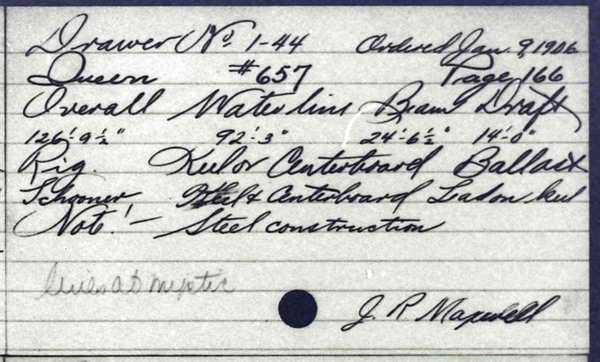 Drawer No. 1-44 Ordered Jan. 9, 1906
Queen #657 Page 166
Overall Waterline Beam Draft
126'-9½" 92'-3" 24'-6½" 14'-0"
Rig. Keel or Centerboard Ballast
Schooner Keel & Centerboard Lead on keel
Note! - Steel construction
J. R. Maxwell